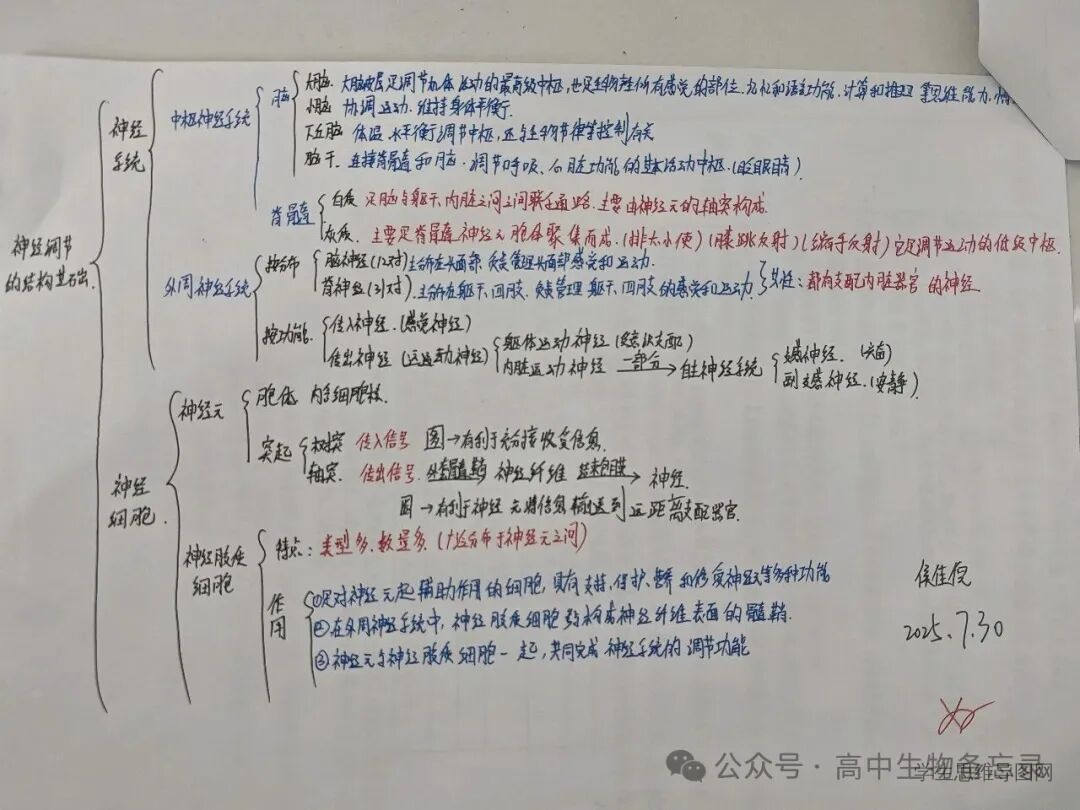 神经调节
的结构基础
神经
系统
中枢神经系统
脑
大脑 大脑皮层是调节机体活动的最高级中枢,也是生物产生所有感觉的部位
小脑 协调运动.维持身体平衡.
下丘脑 体温 水平衡调节中枢,还与生物节律等控制有关
脑干. 连接脊髓和脑.调节呼吸、心脏功能的基本活动中枢.(眨眼睛)
脊髓
白质 是脑与躯干、内脏之间之间联系通路.主要由神经元的轴突构成.
灰质. 主要是脊髓神经元胞体聚集而成.(排大小便)(膝跳反射)(缩手反射)它是调节运动的低级中枢.
外周神经系统
按分布
脑神经(12对)主分布在头面部.负责管理头面部感觉和运动.
脊神经(31对).主分布在躯干、四肢.负责管理躯干、四肢的感觉和运动.
共性:都有支配内脏器官的神经
按功能.
传入神经.(感觉神经)
传出神经(运动神经)
躯体运动神经(受意识支配)
内脏运动神经 一部分→自主神经系统
交感神经.(兴奋)
副交感神经.(安静)
神经
细胞.
神经元
胞体 内含细胞核.
突起
树突 传入信号 图→有利于充分接收信息.
轴突. 传出信号. 外套髓鞘 神经纤维 结束包膜→神经.
图→有利于神经元将信息输送到远距离支配器官.
神经胶质
细胞
特点:类型多.数量多.(广泛分布于神经元之间)
作用
①是对神经元起辅助作用的细胞,具有支持、保护、营养和修复神经元等多种功能
②在外周神经系统中,神经胶质细胞参与构成神经纤维表面的髓鞘.
③神经元与神经胶质细胞一起,共同完成神经系统的调节功能
2025.7.30
公众号·高中生物备忘录
学生思维导图网